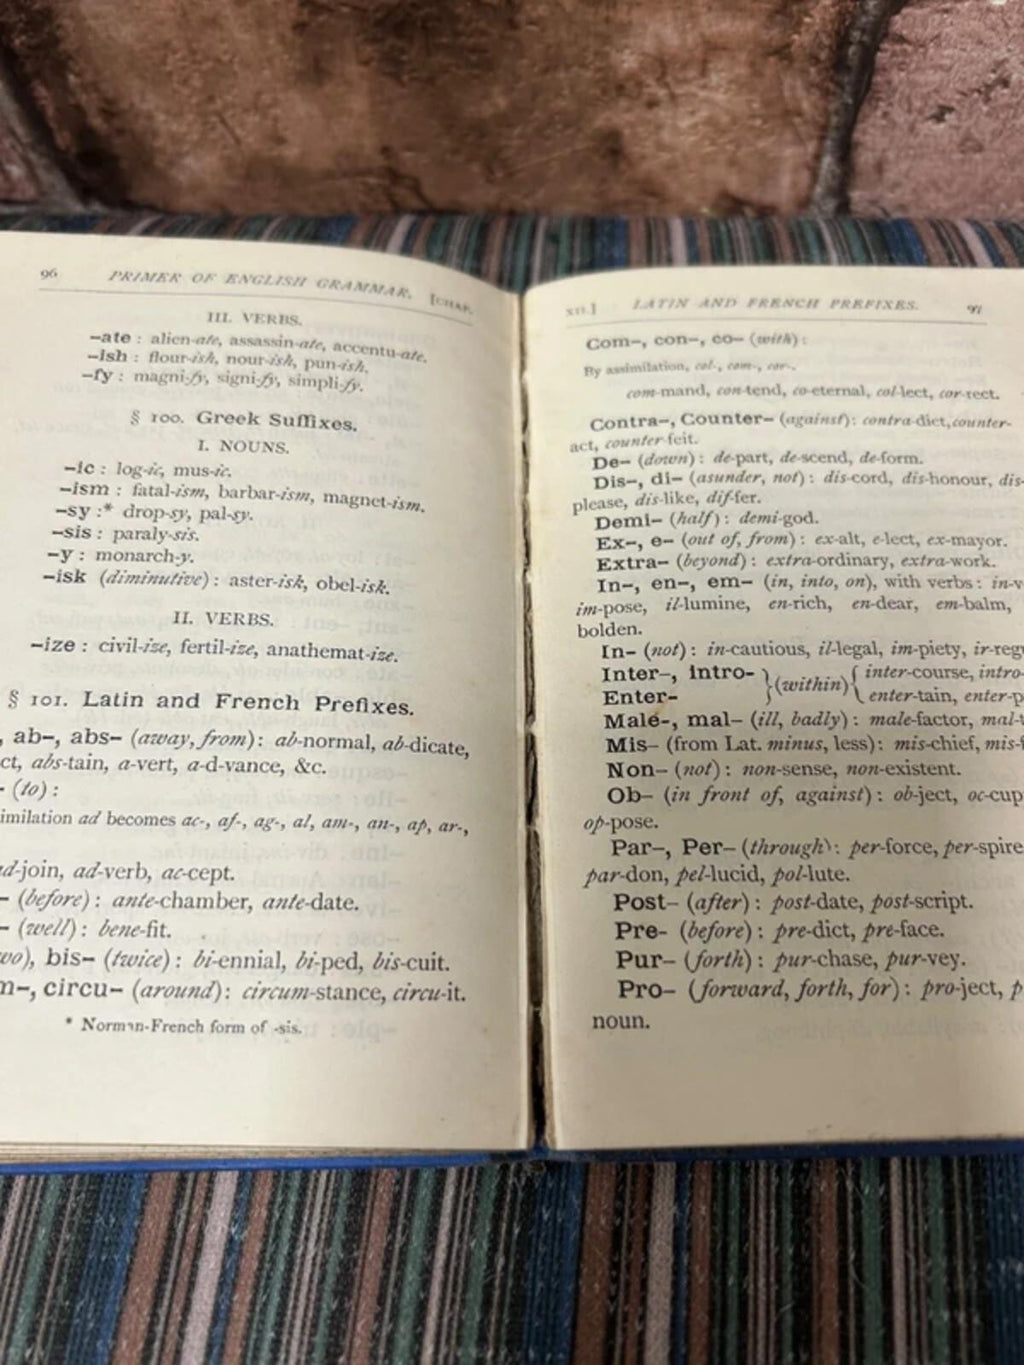 96 PRIMER OF ENGLISH GRAMMAR. [CHAP.
III. VERBS.
–ate : alien-ate, assassin-ate, accentu-ate.
–ish : flour-ish, nour-ish, pun-ish.
–fy : magni-fy, signi-fy, simpli-fy.
§ 100. Greek Suffixes.
I. NOUNS.
–ic : log-ic, mus-ic.
–ism : fatal-ism, barbar-ism, magnet-ism.
–sy :* drop-sy, pal-sy.
–sis : paraly-sis.
–y : monarch-y.
–isk (diminutive) : aster-isk, obel-isk.
II. VERBS.
–ize : civil-ize, fertil-ize, anathemat-ize.
§ 101. Latin and French Prefixes.
, ab–, abs– (away, from) : ab-normal, ab-dicate,
ct, abs-tain, a-vert, a-d-vance, &c.
– (to) :
similation ad becomes ac-, af-, ag-, al, am-, an-, ap, ar-,
ad-join, ad-verb, ac-cept.
– (before) : ante-chamber, ante-date.
– (well) : bene-fit.
wo), bis– (twice) : bi-ennial, bi-ped, bis-cuit.
m–, circu– (around) : circum-stance, circu-it.
* Norman-French form of -sis.
XII.] LATIN AND FRENCH PREFIXES. 97
Com–, con–, co– (with) :
By assimilation, col-, com-, cor-.
com-mand, con-tend, co-eternal, col-lect, cor-rect.
Contra–, Counter– (against) : contra-dict, counter-
act, counter-feit.
De– (down) : de-part, de-scend, de-form.
Dis–, di– (asunder, not) : dis-cord, dis-honour, dis-
please, dis-like, dif-fer.
Demi– (half) : demi-god.
Ex–, e– (out of, from) : ex-alt, e-lect, ex-mayor.
Extra– (beyond) : extra-ordinary, extra-work.
In–, en–, em– (in, into, on), with verbs : in-v
im-pose, il-lumine, en-rich, en-dear, em-balm,
bolden.
In– (not) : in-cautious, il-legal, im-piety, ir-regu
Inter–, intro- } (within) { inter-course, intro-
Enter- enter-tain, enter-p
Male–, mal– (ill, badly) : male-factor, mal-t
Mis– (from Lat. minus, less) : mis-chief, mis-f
Non– (not) : non-sense, non-existent.
Ob– (in front of, against) : ob-ject, oc-cup
op-pose.
Par–, Per– (through) : per-force, per-spire
par-don, pel-lucid, pol-lute.
Post– (after) : post-date, post-script.
Pre- (before) : pre-dict, pre-face.
Pur– (forth) : pur-chase, pur-vey.
Pro– (forward, forth, for) : pro-ject, p
noun.